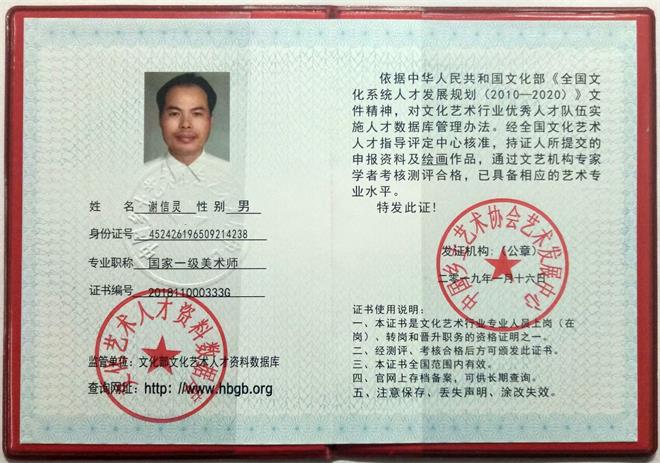 姓 名 谢信灵 性别 男
身份证号 452426196509214238
专业职称 国家一级美术师
证书编号 201811000333G
监管单位：文化部文化艺术人才资料数据库
查询网址：http://www.hbgb.org
文化艺术人才资料数据库
依据中华人民共和国文化部《全国文
化系统人才发展规划（2010—2020）》文
件精神，对文化艺术行业优秀人才队伍实
施人才数据库管理办法。经全国文化艺术
人才指导评定中心核准，持证人所提交的
申报资料及绘画作品，通过文艺机构专家
学者考核测评合格，已具备相应的艺术专
业水平。
特发此证！
发证机构：（公章）
二零一九年一月十六日
中国乡土艺术协会艺术发展中心
证书使用说明：
一、本证书是文化艺术行业专业人员上岗（在
岗）、转岗和晋升职务的资格证明之一。
二、经测评、考核合格后方可颁发此证书。
三、本证书全国范围内有效。
四、官网上存档备案，可供长期查询。
五、注意保存、丢失声明、涂改失效。